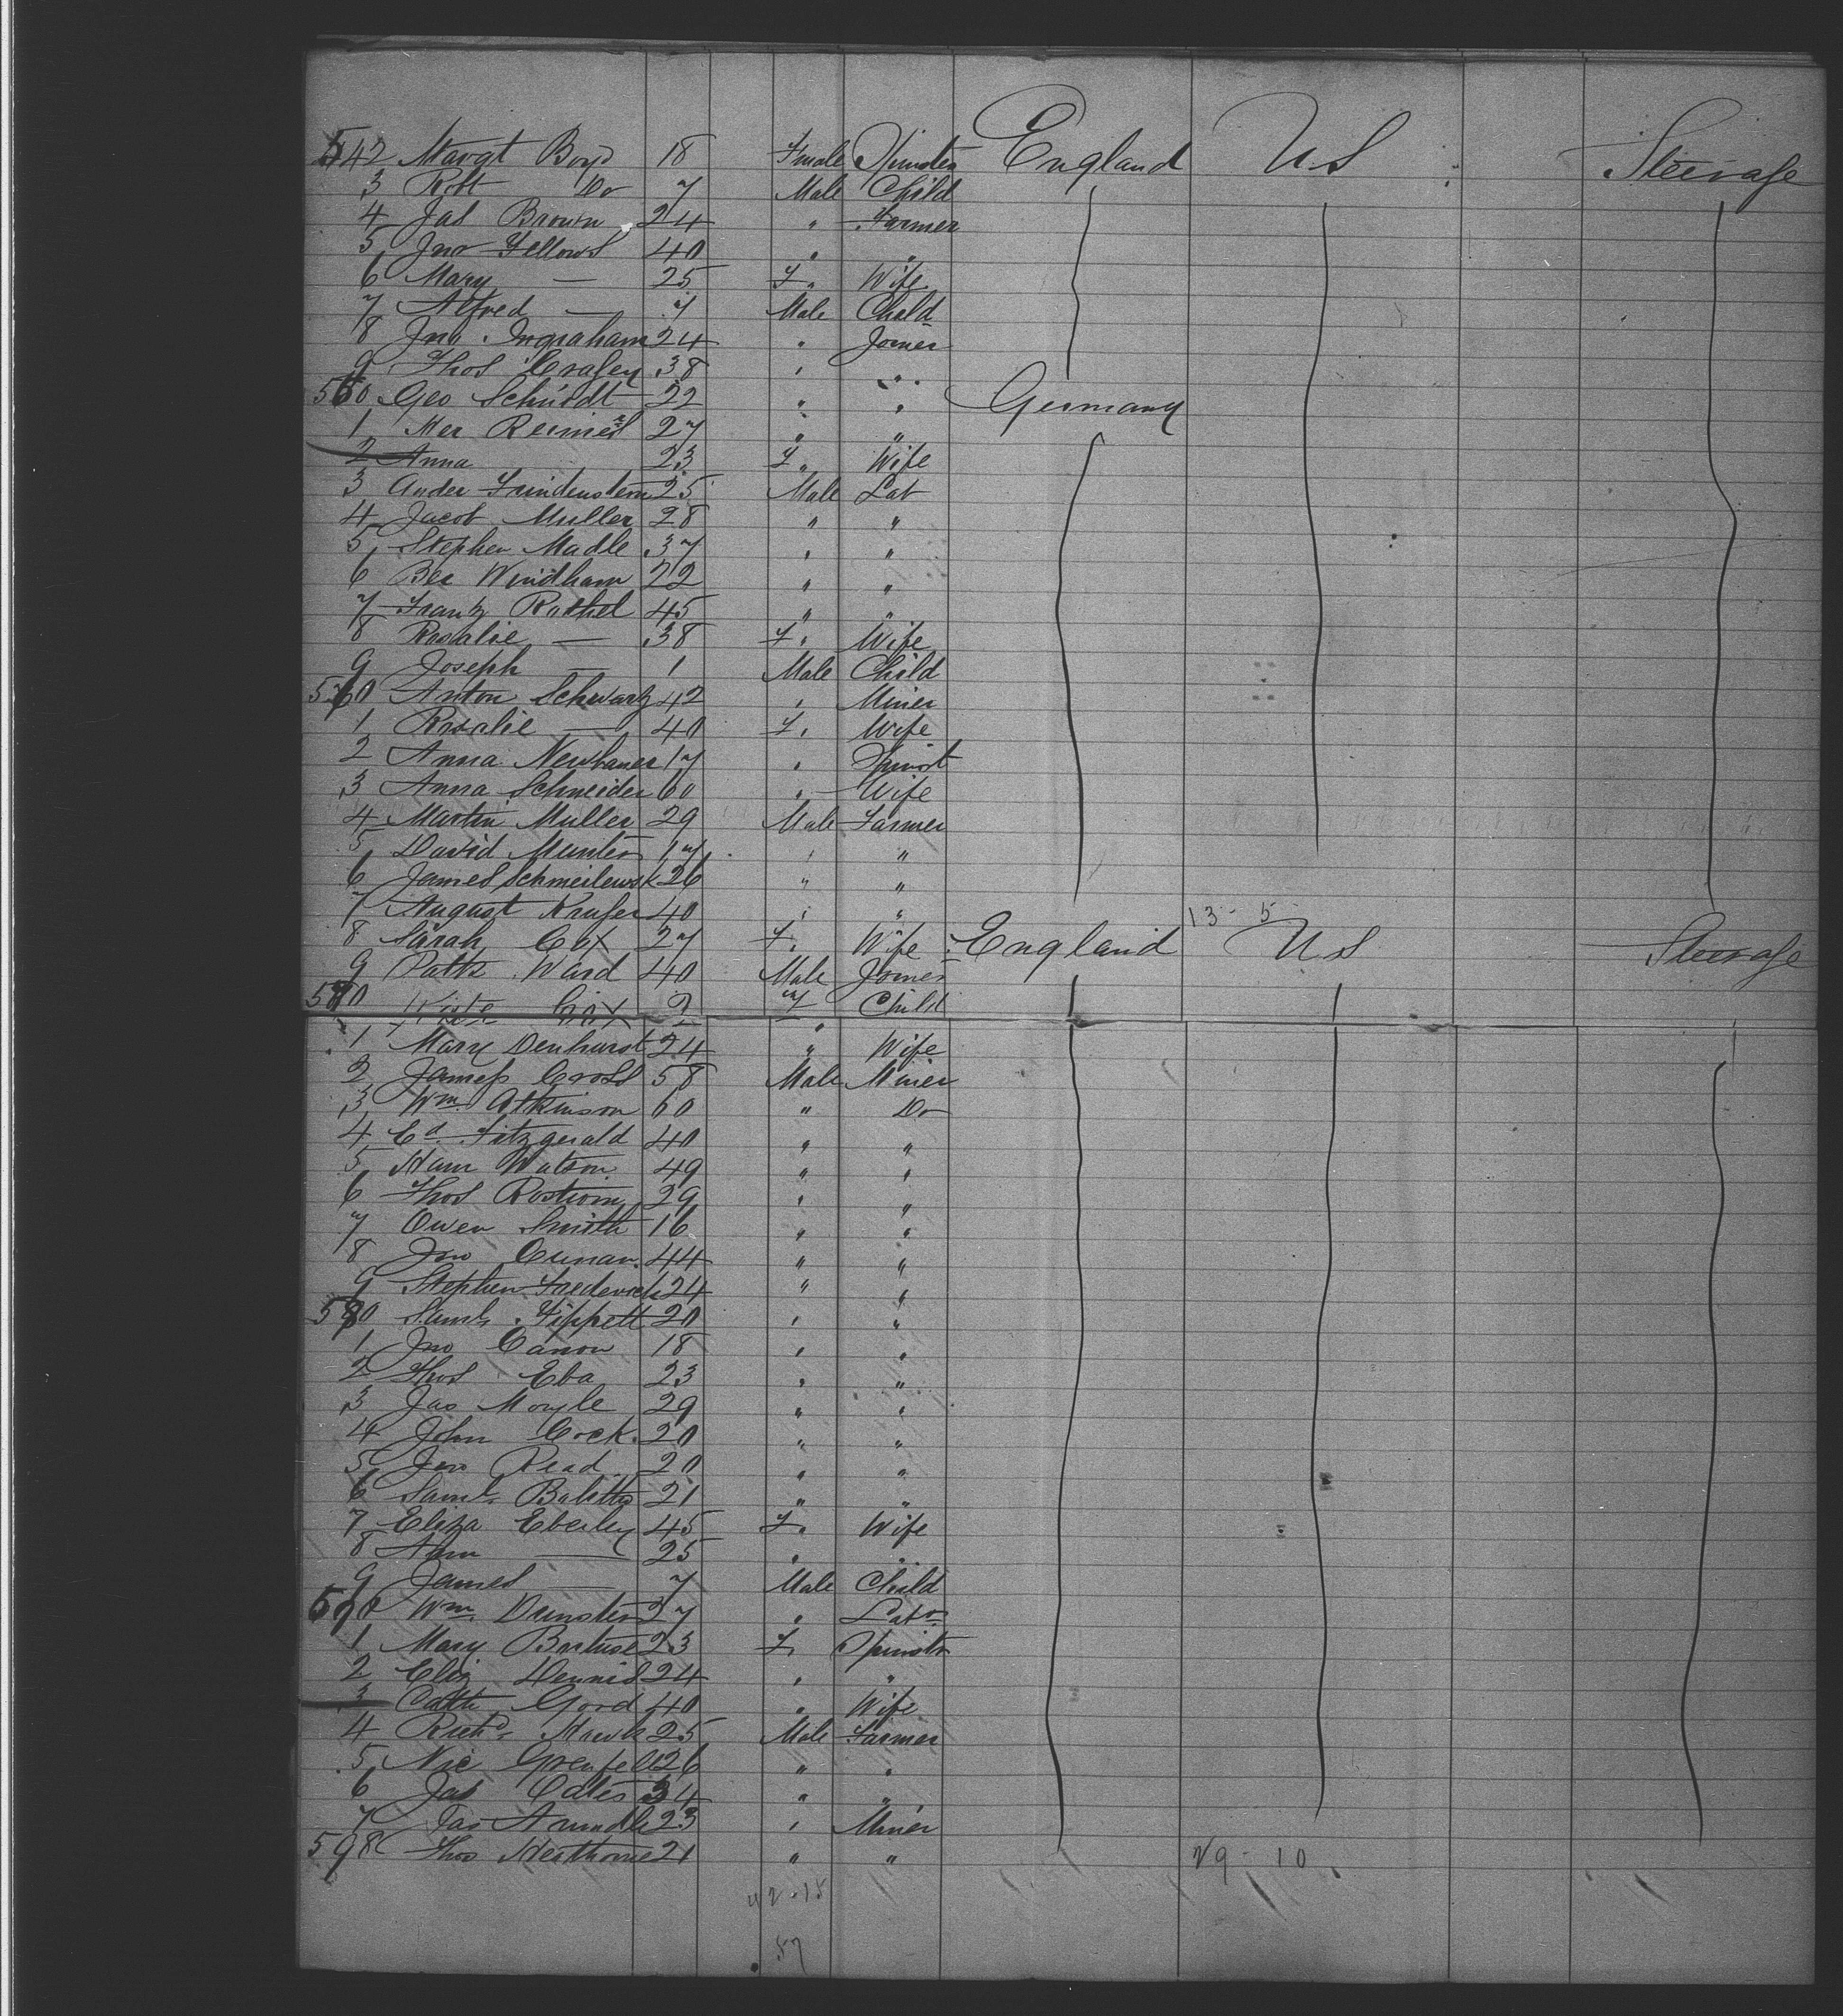 542 Margt Boyd 18 Female Spinster England US Steerage
3 Robt Do 7 Male Child
4 Jas Brown 24 " Farmer
5 Jno Fellows 40 " "
6 Mary — 25 F. Wife
7 Alfred — 7 Male Child
8 Jno Ingraham 24 " Joiner
9 Thos 38 " "
550 Geo Schmidt 22 " " Germany
1 27 " "
2 Anna 23 F. Wife
3 25 Male Lab
4 Jacob Muller 28 " "
5 Stephen Madle 37 " "
6 Windham 22 " "
7 Frantz 45 " "
8 Rosalie — 38 F. Wife
9 Joseph — 1 Male Child
560 Anton Schwarz 42 " Miner
1 Rosalie — 40 F. Wife
2 Anna Neubauer 17 " Spinst
3 Anna Schneider 60 " Wife
4 Martin Muller 29 Male Farmer
5 David Munter 17 " "
6 James 26 " "
7 August 40 " "
13 - 5
8 Sarah Cox 27 F. Wife England US Steerage
9 Patk Ward 40 Male Joiner
570 Cox 2 F Child
1 Mary Denhurst 24 " Wife
2 James Cross 58 Male Miner
3 Wm Atkinson 60 " Do
4 Ed. Fitzgerald 40 " "
5 Watson 49 " "
6 Thos 29 " "
7 Owen Smith 16 " "
8 Jno 44 " "
9 Stephen Frederick 24 " "
580 Saml. Tippett 20 " "
1 Jno Canon 18 " "
2 Thos Eba 23 " "
3 Jas Moyle 29 " "
4 John Cock 20 " "
5 Jno Read 20 " "
6 Saml. 21 " "
7 Eliza Eberley 45 F. Wife
8 Ann — 25 " "
9 James — 7 Male Child
590 Wm. Dunster 27 " Labr
1 Mary 23 F. Spinstr
2 Eliz Dennis 24 " "
3 Cath 40 " Wife
4 Richd. Hawk 25 Male Farmer
5 Nic Grenfell 26 " "
6 Jas 34 " "
7 Jas Arundle 23 " Miner
598 Thos 21 " " 29 - 10
42 - 15
57